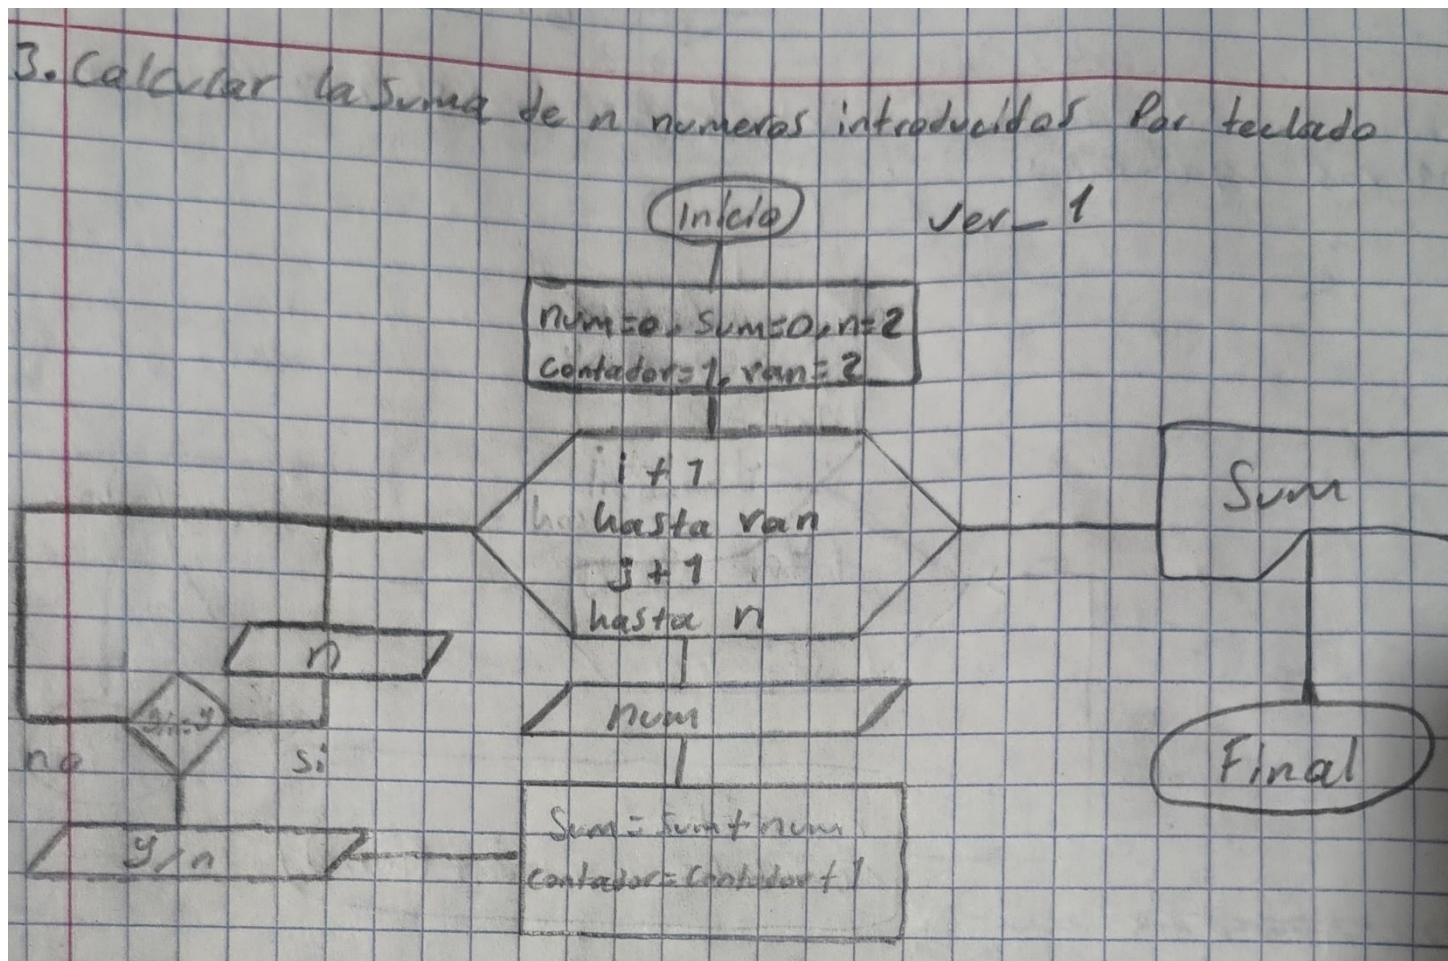 3. Calcular la suma de n numeros introducidos Por teclado
Inicio
ver_1
num=0, sum=0, n=2
contador=1, ran=2
i+1
hasta ran
j+1
hasta n
Sum
n
num
no
si
Final
y/n
Sum=sum+num
contador=contador+1